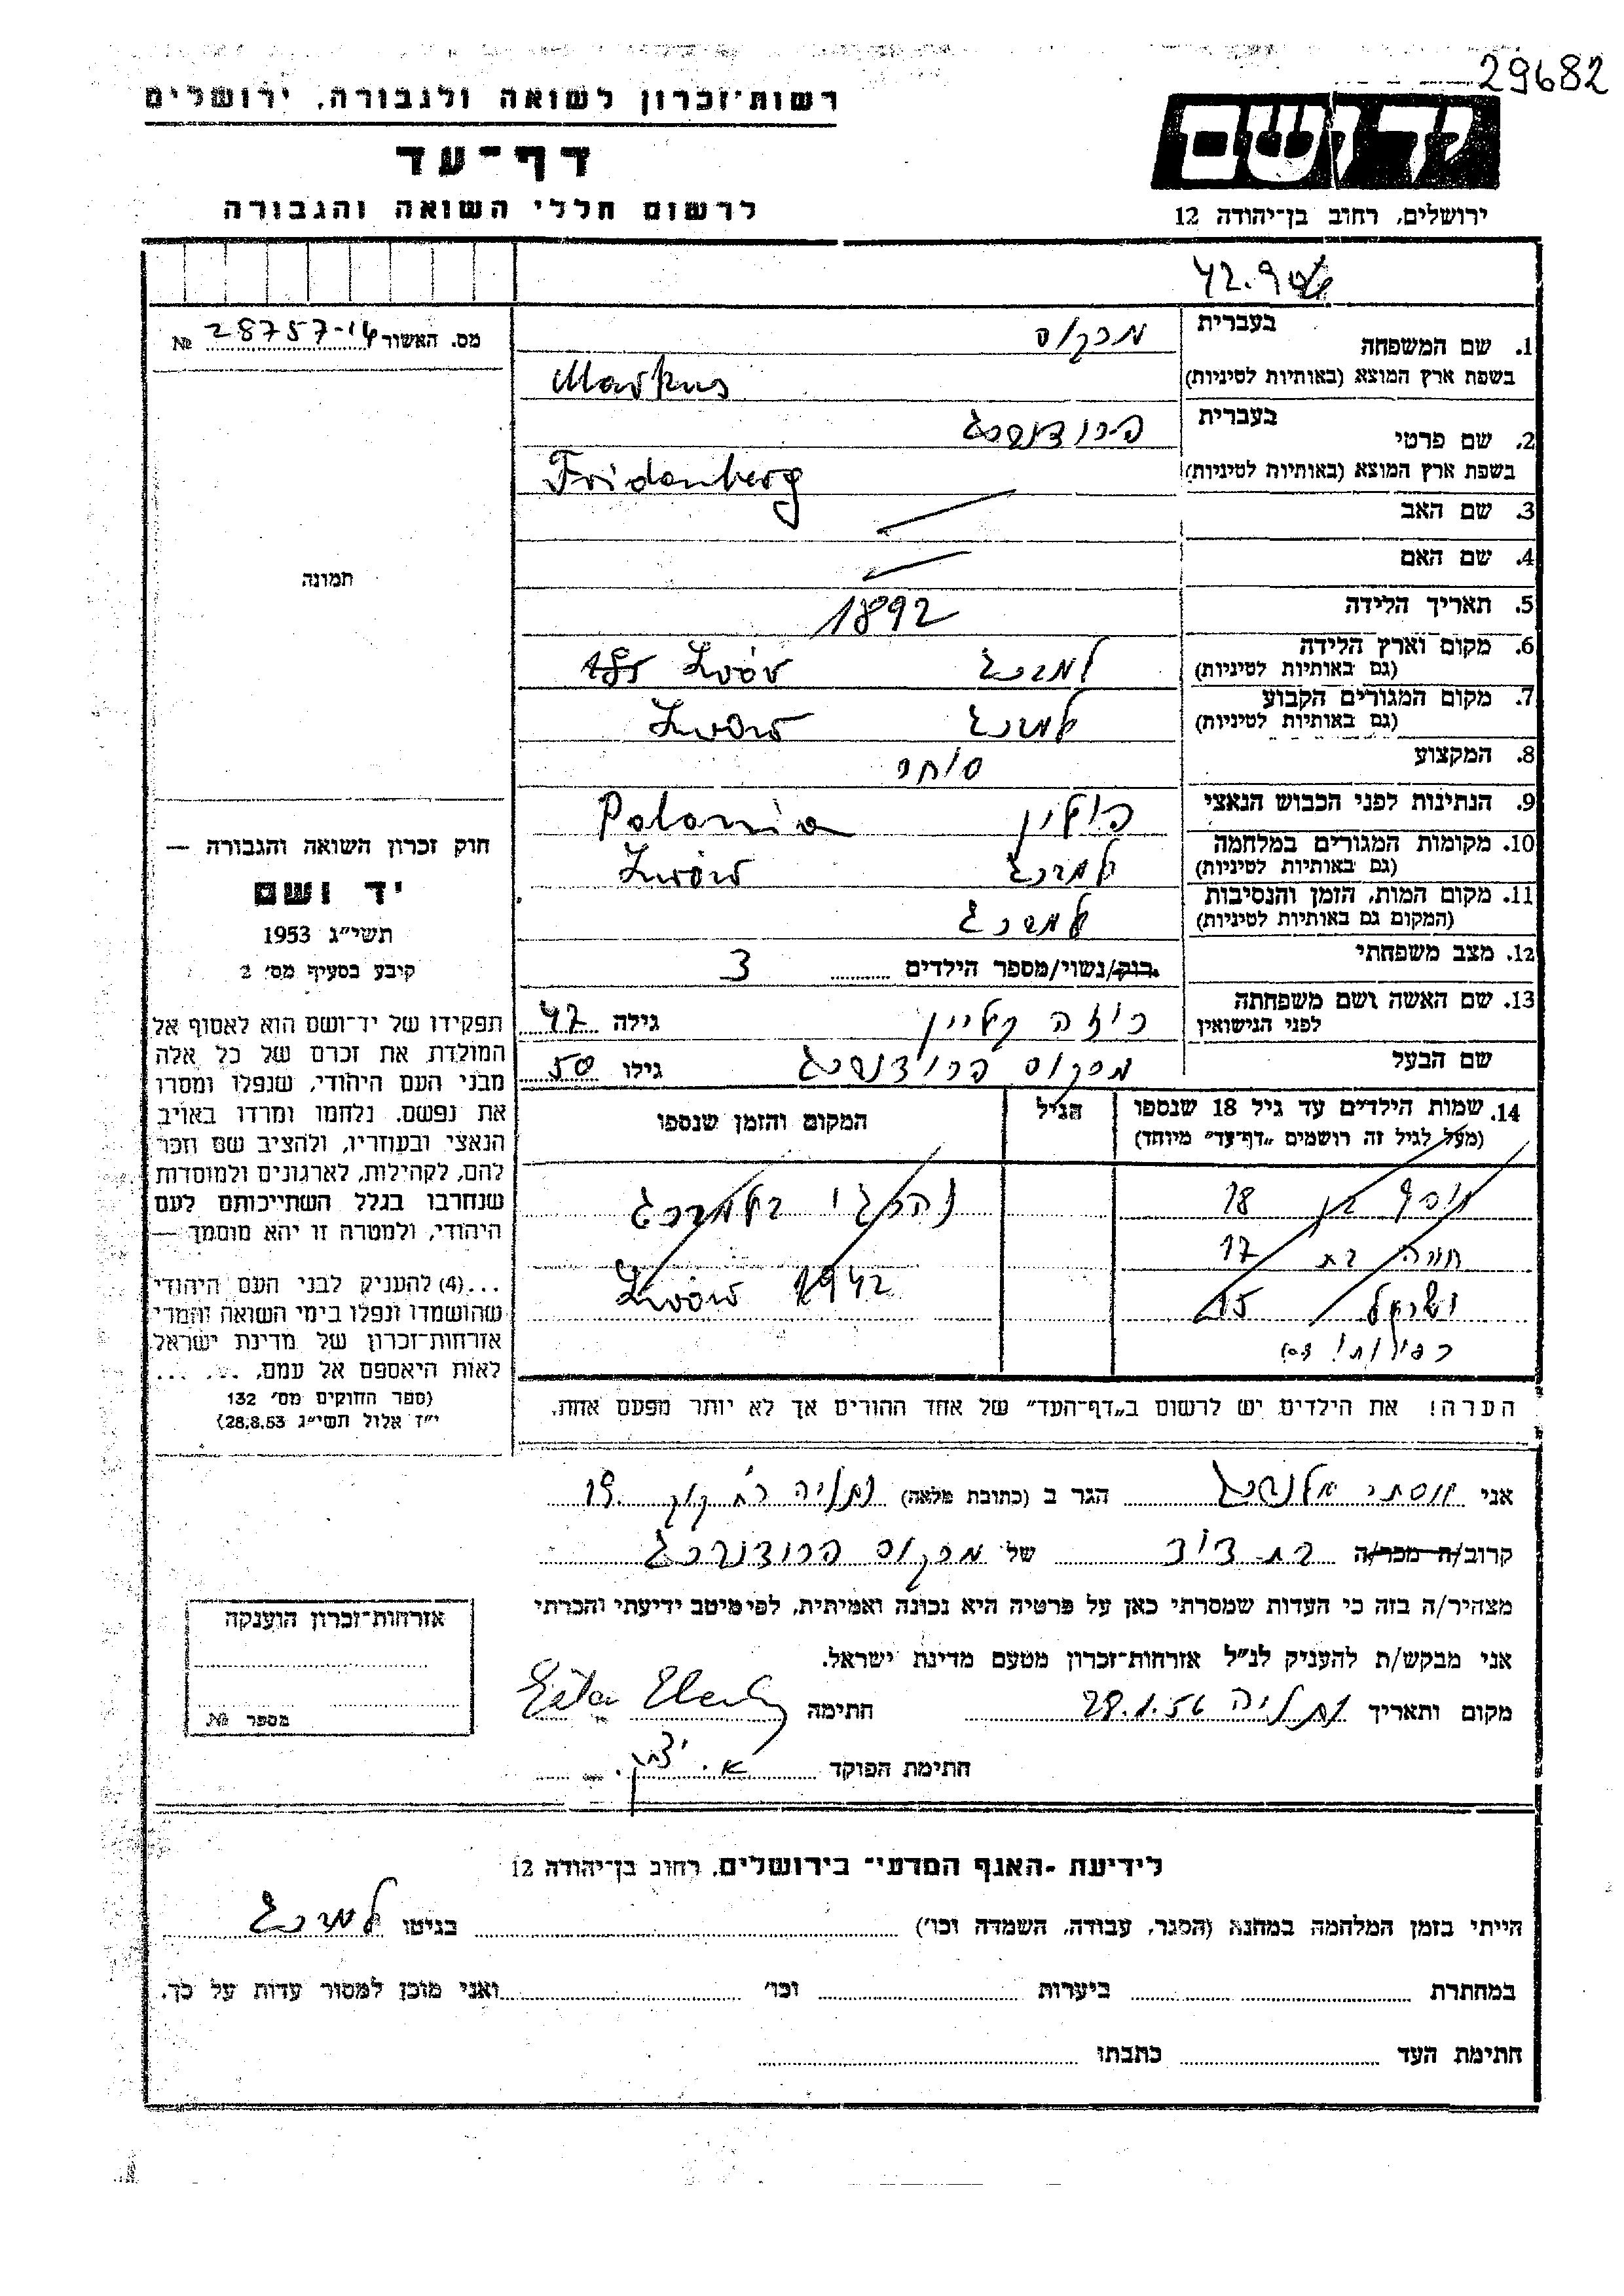 29682
רשות־זכרון לשואה ולגבורה, ירושלים
דף־עד
לרשום חללי השואה והגבורה
יד ושם
ירושלים, רחוב בן־יהודה 12
מס. האשור 28757-16 №
1. שם המשפחה בעברית מרקוס
בשפת ארץ המוצא (באותיות לטיניות) Markus
2. שם פרטי בעברית פרידנברג
בשפת ארץ המוצא (באותיות לטיניות) Fridenberg
3. שם האב
4. שם האם
5. תאריך הלידה 1892
6. מקום וארץ הלידה למברג Lwów
(גם באותיות לטיניות)
7. מקום המגורים הקבוע למברג Lwów
(גם באותיות לטיניות)
8. המקצוע סוחר
9. הנתינות לפני הכבוש הנאצי פולין Polonia
10. מקומות המגורים במלחמה למברג Lwów
(גם באותיות לטיניות)
11. מקום המות, הזמן והנסיבות למברג
(המקום גם באותיות לטיניות)
12. מצב משפחתי רוק/נשוי/מספר הילדים 3
13. שם האשה ושם משפחתה רוזה קליין גילה 47
לפני הנישואין
שם הבעל מרקוס פרידנברג גילו 50
14. שמות הילדים עד גיל 18 שנספו הגיל המקום והזמן שנספו
(מעל לגיל זה רושמים "דף־עד" מיוחד)
יוסף בן 18 נהרגו בלמברג
בת 17
ישראל 15 Lwów 1942
הערה! את הילדים יש לרשום ב"דף־העד" של אחד ההורים אך לא יותר מפעם אחת.
תמונה
חוק זכרון השואה והגבורה —
יד ושם
תשי"ג 1953
קיבע בסעיף מס' 2
תפקידו של יד־ושם הוא לאסוף אל
המולדת את זכרם של כל אלה
מבני העם היהודי, שנפלו ומסרו
את נפשם, נלחמו ומרדו באויב
הנאצי ובעוזריו, ולהציב שם וזכר
להם, לקהילות, לארגונים ולמוסדות
שנחרבו בגלל השתייכותם לעם
היהודי, ולמטרה זו יהא מוסמך —
...(4) להעניק לבני העם היהודי
שהושמדו ונפלו בימי השואה והמרי
אזרחות־זכרון של מדינת ישראל
לאות היאספם אל עמם. ...
(ספר החוקים מס' 132
י"ז אלול תשי"ג 28.8.53)
אני אסתי אלנברג הגר ב (כתובת מלאה) נתניה רח' קוק 19.
קרוב/ה מכר/ה בת דוד של מרקוס פרידנברג
מצהיר/ה בזה כי העדות שמסרתי כאן על פרטיה היא נכונה ואמיתית, לפי מיטב ידיעתי והכרתי
אני מבקש/ת להעניק לנ"ל אזרחות־זכרון מטעם מדינת ישראל.
מקום ותאריך נתניה 28.1.56 חתימה
חתימת הפוקד א. יצחק
אזרחות־זכרון הוענקה
מספר №
לידיעת ־האגף המדעי־ בירושלים, רחוב בן־יהודה 12
הייתי בזמן המלחמה במחנה (הסגר, עבודה, השמדה וכו') בגיטו למברג
במחתרת ביערות וכו' ואני מוכן למסור עדות על כך.
חתימת העד כתבתו